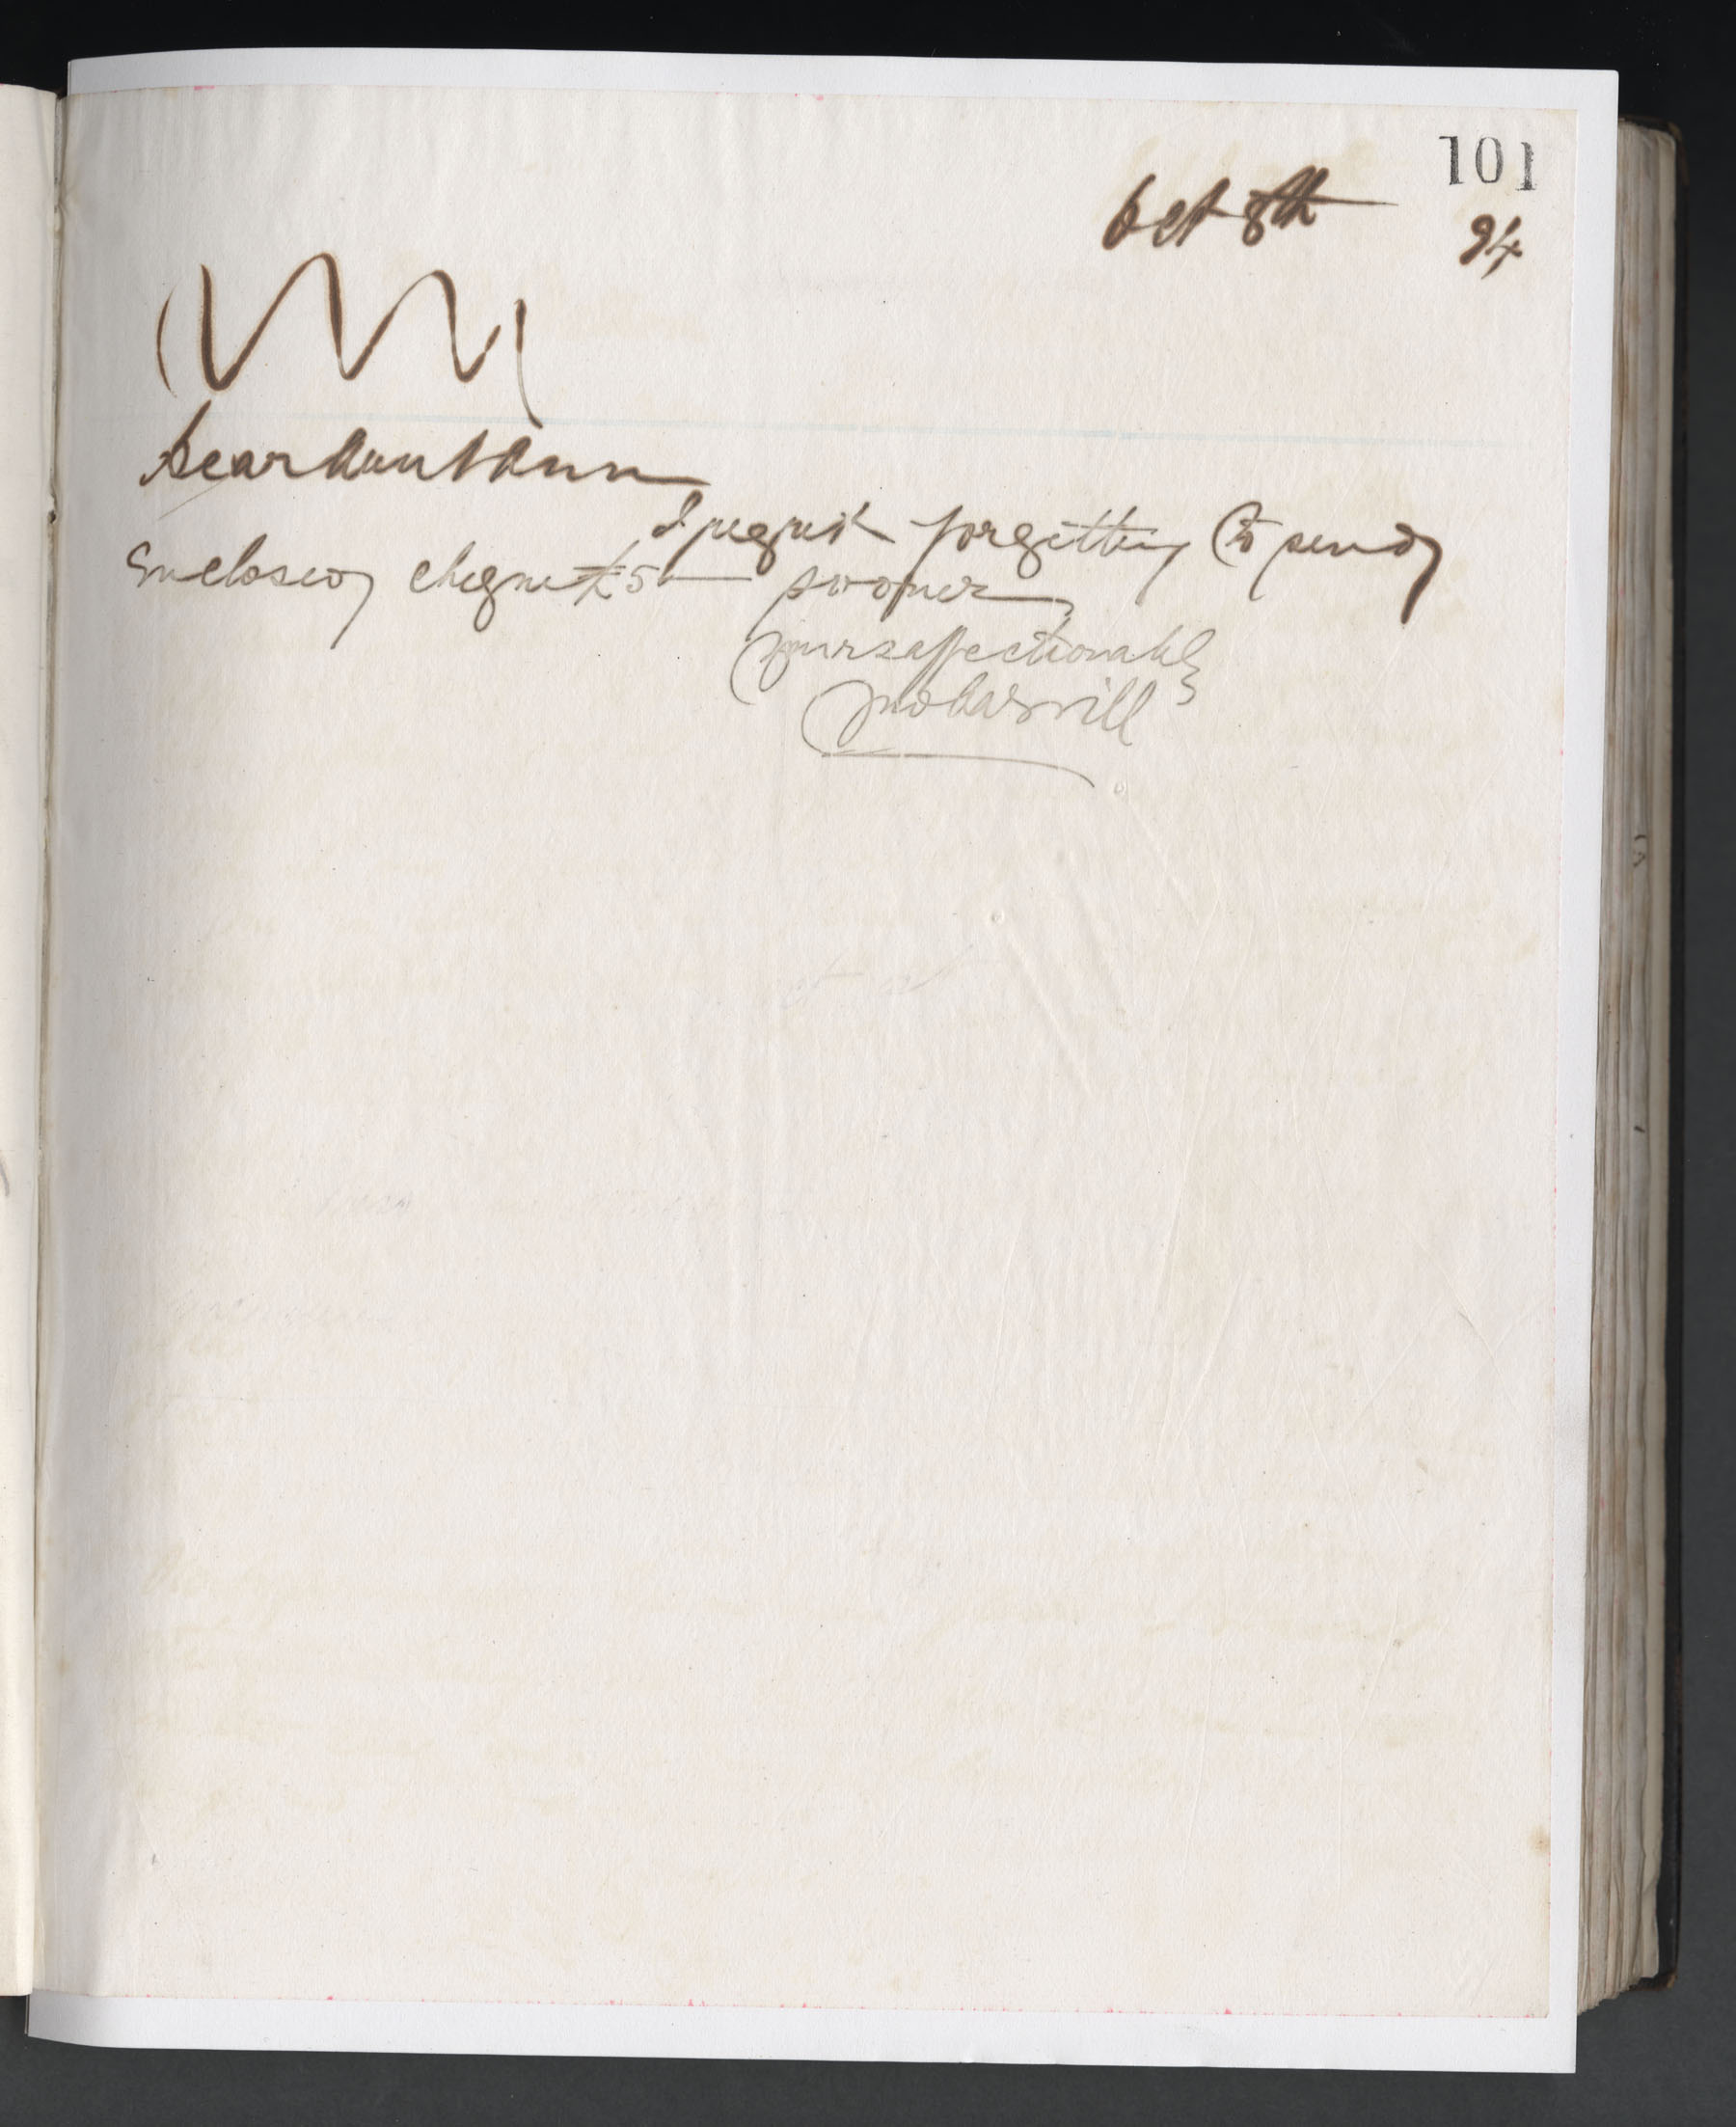 101
Oct 8th 94
Dear Aunt Ann
I regret forgetting to send
Enclosed cheque £5 — sooner
Yours affectionately
Jno Cassvill